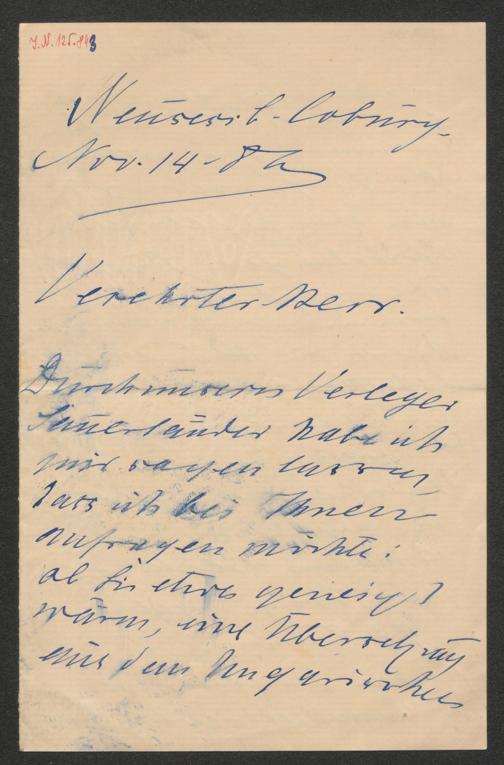 J.N. 125.843
Neuses i. b. Coburg.
Nov. 14 -
Verehrter Herr.
Durch unseren Verleger
Sauerländer habe ich
mir sagen lassen,
dass ich bei Ihnen
anfragen möchte:
ob Sie etwa geneigt
wären, eine Übersetzung
aus dem Ungarischen